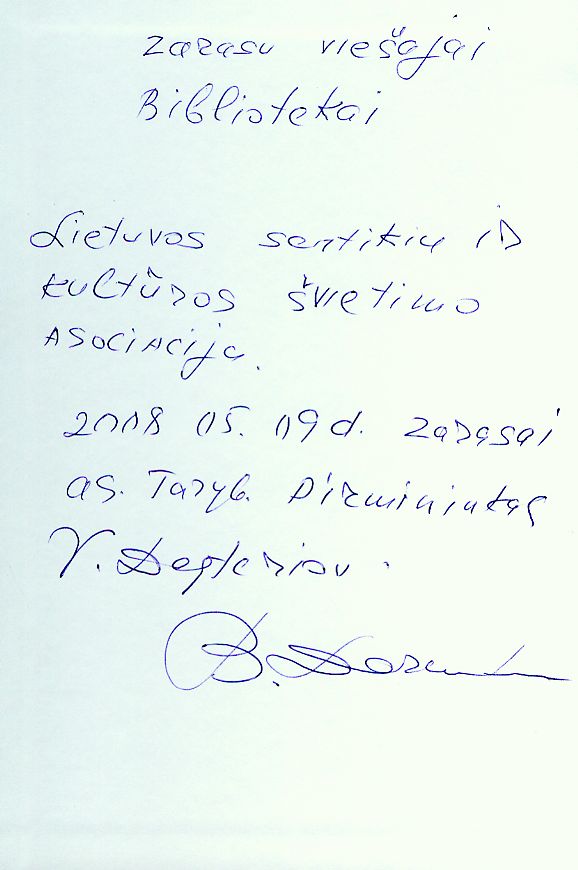 Zarasu viešajai
Bibliotekai
Lietuvos sentikių ir
kultūros švietimo
asociacija.
2008 05. 09 d. Zarasai
as. Taryb. Pirmininkas
V.